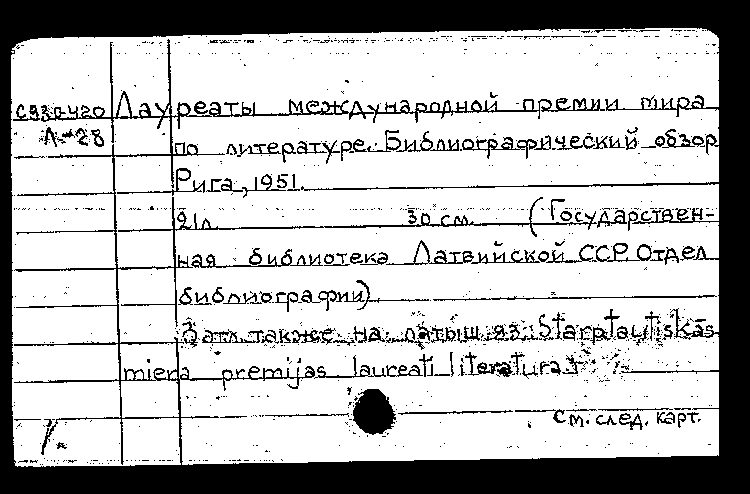 Лауреаты международной премии мира
Л-28
по литературе. Библиографический обзор
Рига, 1951.
21л. 30 см. (Государствен-
ная библиотека Латвийской ССР. Отдел
библиографии).
Загл. также на латыш. яз.: Starptautiskās
miera premijas laureati literatura
См. след. карт.